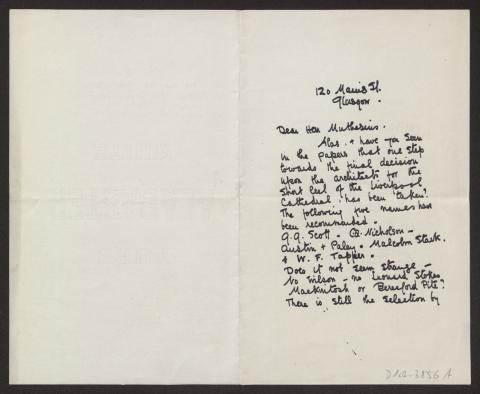 120 Mains St.
Glasgow.
Dear Herr Muthesius.
Alas. & have you seen
in the papers that one step
towards the final decision
upon the architects for the
short leet of the Liverpool
Cathedral has been taken?
The following five names have
been recommended.
G.G. Scott. C.A. Nicholson –
Austin & Paley. Malcolm Stark.
& W. F. Tapper.
Does it not seem strange –
No Wilson – no Leonard Stokes
Mackintosh or Beresford Pite?
There is still the selection by
D 102-3856 A